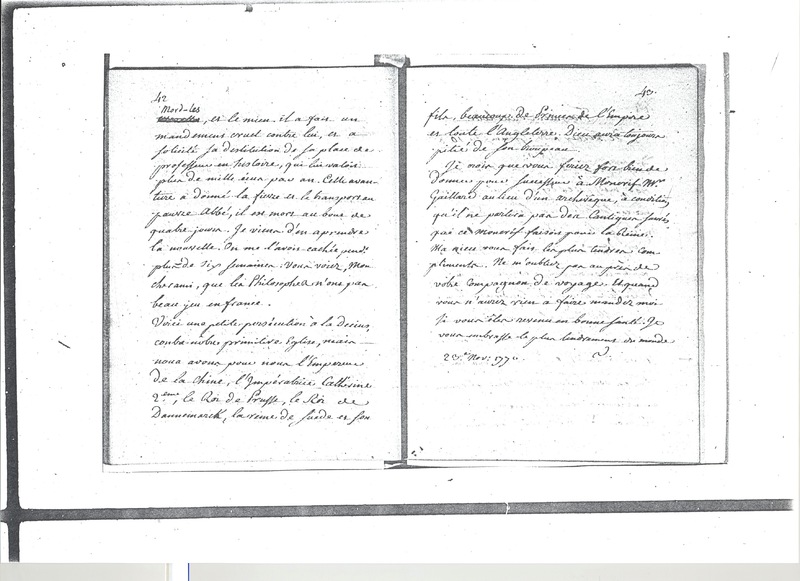 42
Mord-les
, et le mien. il a fait un
mandement cruel contre lui, et a
solicité sa destitution de sa place de
professeur en histoire, qui lui valoit
plus de mille écus par an. Cette avan-
ture a donné la fievre et le transport au
pauvre Abbé, il est mort au bout de
quatre jours. Je viens d'en aprendre
la nouvelle. On me l'avoit cachée pend.t
plus de six semaines. vous voiez, mon
cher ami, que les Philosophes n'ont pas
beau jeu en france.
Voici une petite persécution à la Decius,
contre nôtre primitive Eglise, mais
nous avons pour nous l'Empereur
de la Chine, l'Impératrice Catherine
2.eme, le Roi de Prusse, le Roi de
Dannemarck, la reine de Suede et son
43.
fils, beaucoup de Princes de l'Empire
et toute l'Angleterre. Dieu aura toujours
pitié de son troupeau.
Je crois que vous feriez fort bien de
donner pour successeur à Moncrif Mr.
Gaillard au lieu d'un archevêque, à condition
qu'il ne parlera pas des Cantiques sacrés,
que ce Moncrif faisoit pour la Reine.
Ma niece vous fait les plus tendres com-
pliments. Ne m'oubliez pas auprès de
votre Compagnon de voyage. Et quand
vous n'aurez rien à faire mandez moi
si vous êtes revenu en bonne santé. Je
vous embrasse le plus tendrement du monde
23.e Nov. 1770. V